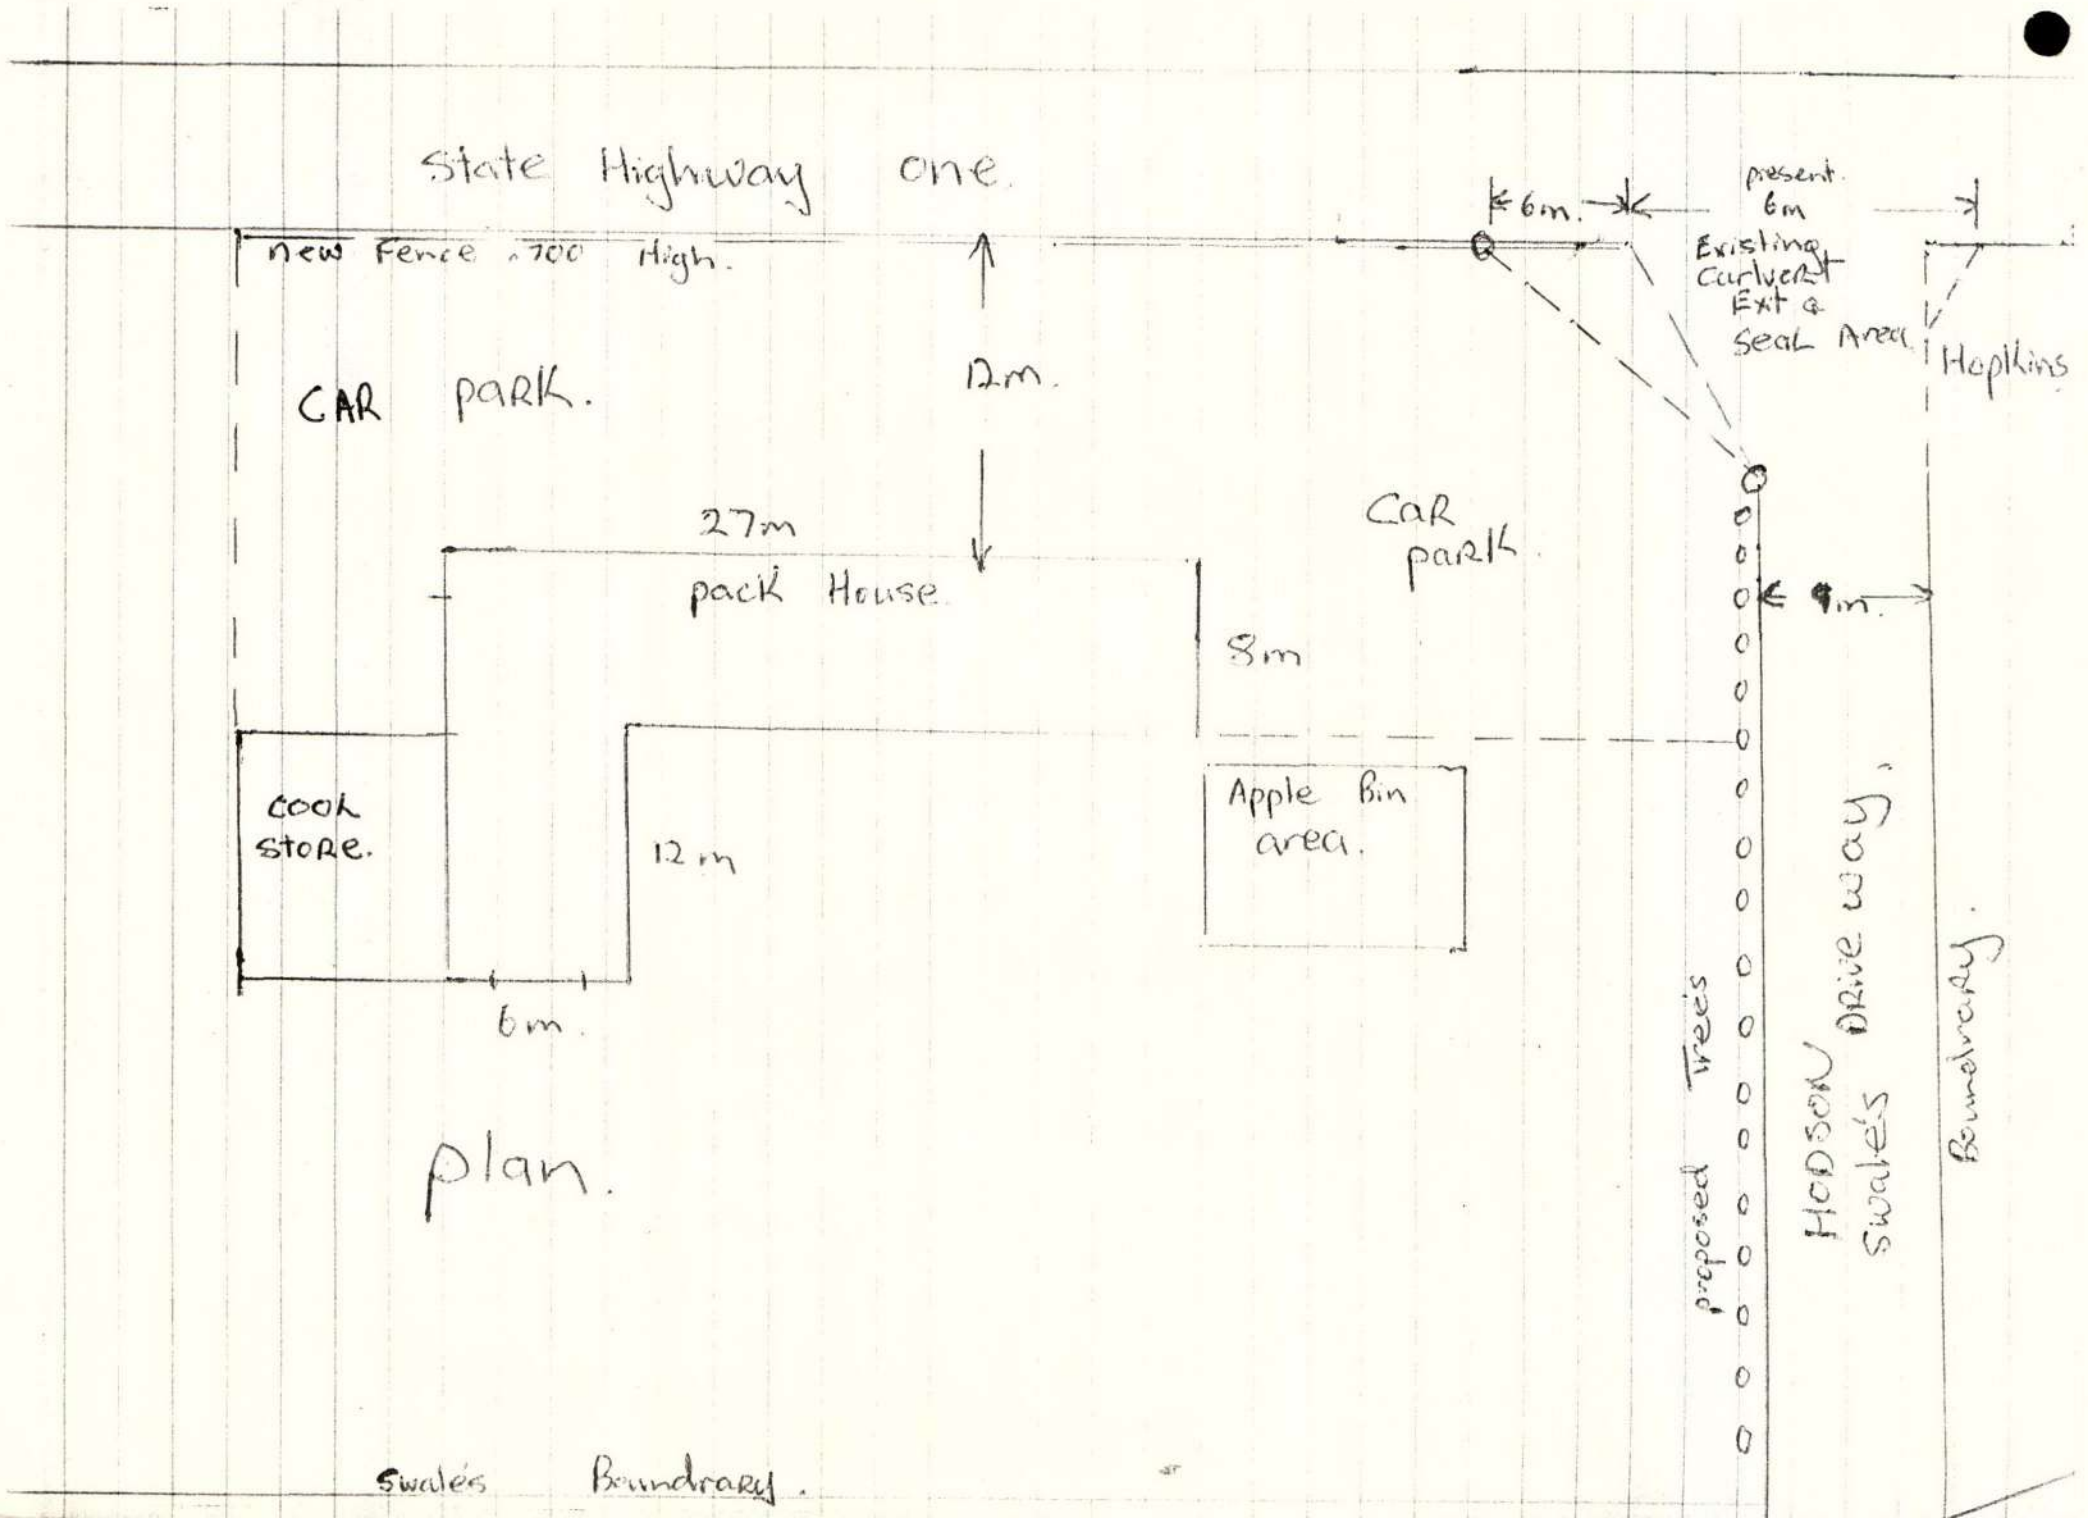 State Highway one.
6m.
present.
6m
new Fence .700 High.
Existing
Curlvert
Exit &
Seal Area
Hopkins
12m.
CAR park.
27m
Car
park.
pack House
9m.
8m
cool
store.
12m
Apple Bin
area.
6m.
proposed Trees
HODSON
Swale's Drive way.
Boundrary.
plan.
Swale's Boundrary.